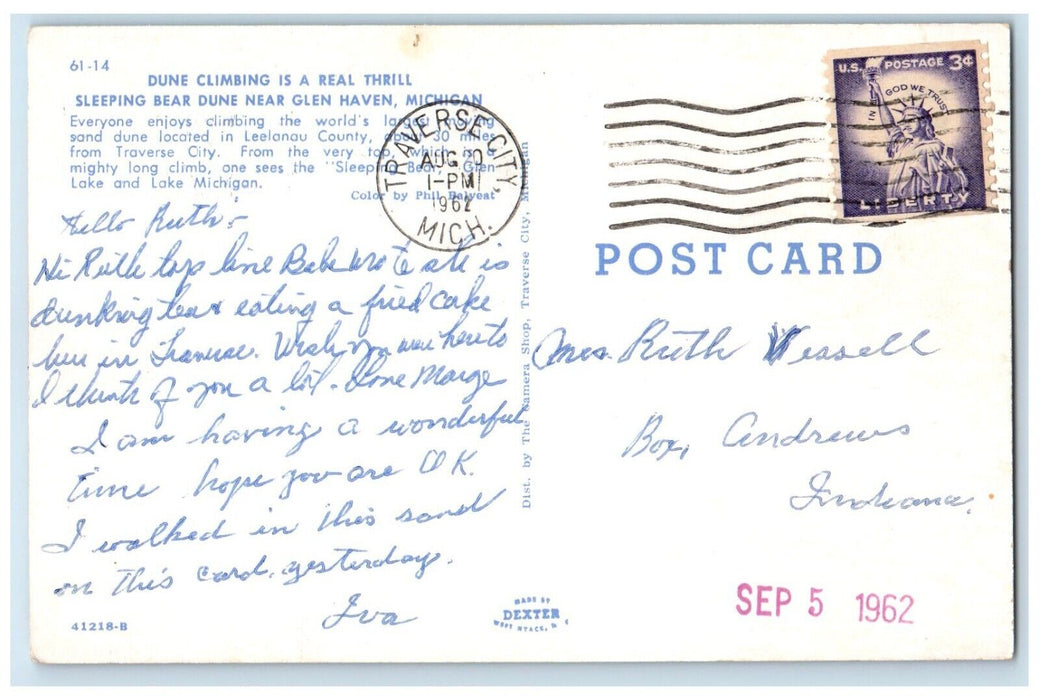 61-14
DUNE CLIMBING IS A REAL THRILL
SLEEPING BEAR DUNE NEAR GLEN HAVEN, MICHIGAN
Everyone enjoys climbing the world's largest moving
sand dune located in Leelanau County, about 30 miles
from Traverse City. From the very top, which is a
mighty long climb, one sees the "Sleeping Bear," Glen
Lake and Lake Michigan.
Color by Phil Balyeat
Hello Ruth:
Hi Ruth top line Bab wrote she is
dunking tea & eating a fried cake
here in Traverse. Wish you were here to
I think of you a lot. Love Marge
I am having a wonderful
time hope you are O K.
I walked in this sand
on this card. yesterday.
Iva
41218-B
MADE BY
DEXTER
WEST NYACK, N.
Dist. by The Camera Shop, Traverse City, Michigan
TRAVERSE CITY,
AUG
1-PM
1962
MICH.
U.S. POSTAGE 3¢
IN GOD WE TRUST
LIBERTY
POST CARD
Mrs. Ruth Wessell
Box, Andrews
Indiana.
SEP 5 1962